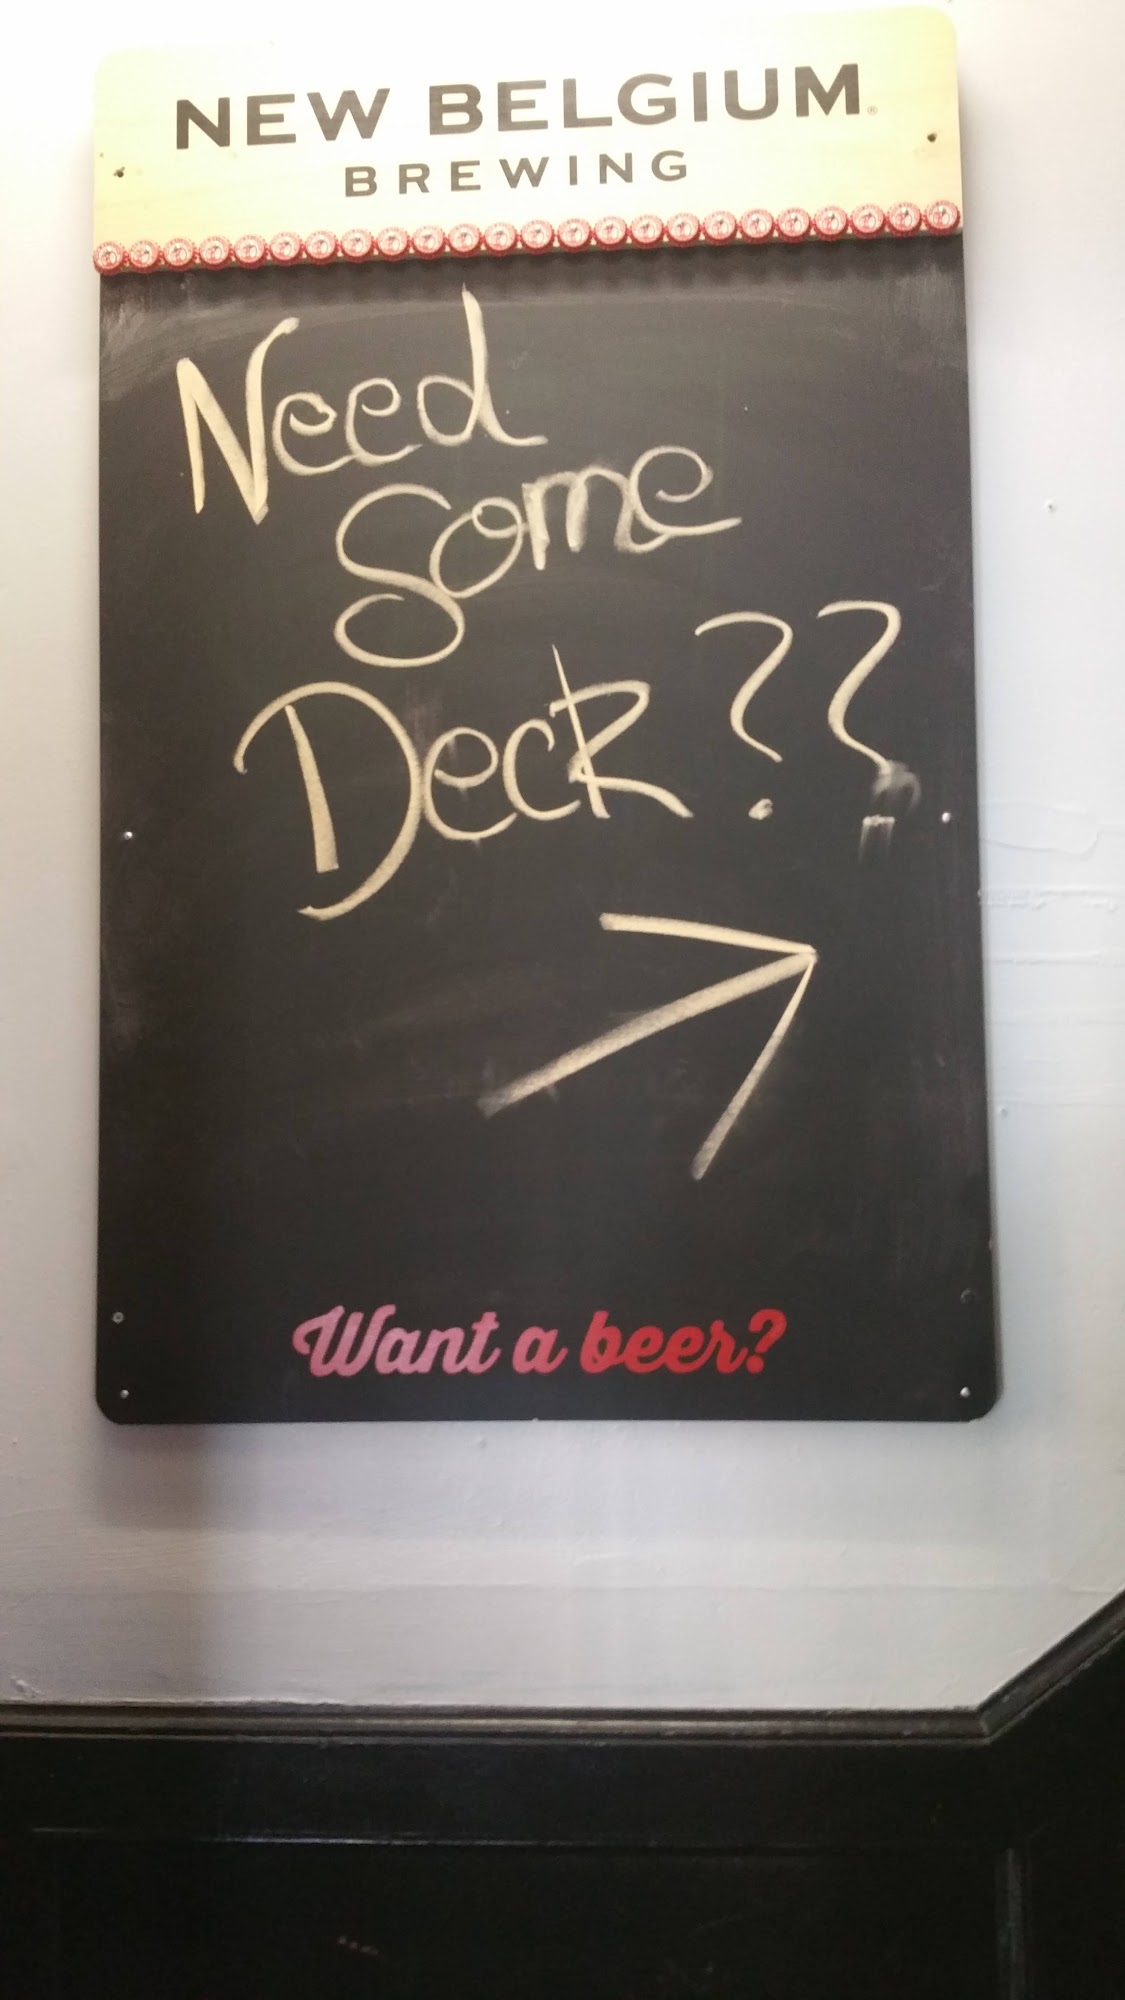 NEW BELGIUM®
BREWING
Need
Some
Deck??
Want a beer?